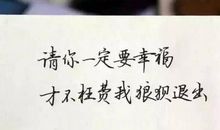 请你一定要幸福
才不枉费我狼狈退出